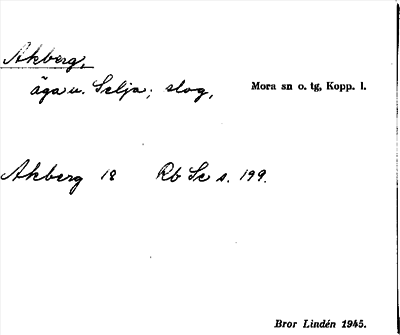 Åkberg,
äga u. Selja; slog, Mora sn o. tg, Kopp. l.
Åkberg 18 Rb Se s. 199.
Bror Lindén 1945.